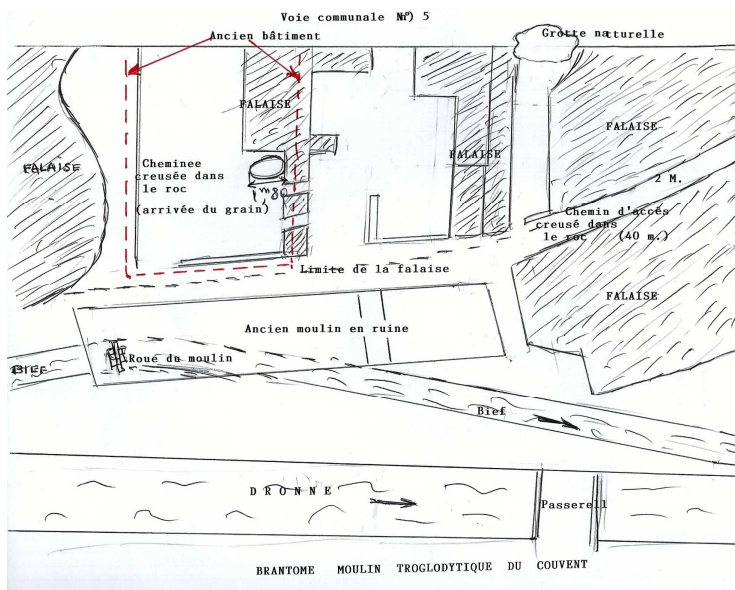 Voie communale N° 5
Ancien bâtiment
Grotte naturelle
FALAISE
FALAISE
FALAISE
FALAISE
Cheminee
creusée dans
le roc
(arrivée du grain)
1m80
2 M.
Chemin d'accés
creusé dans
le roc (40 m.)
Limite de la falaise
FALAISE
Ancien moulin en ruine
Roue du moulin
BIEF
Bief
DRONNE
Passerell
BRANTOME MOULIN TROGLODYTIQUE DU COUVENT